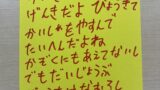 げんきだよ びょうきで
かいしゃをやすんで
たいへんだよね
かぞくにもあえてないし
でもだいじょうぶ